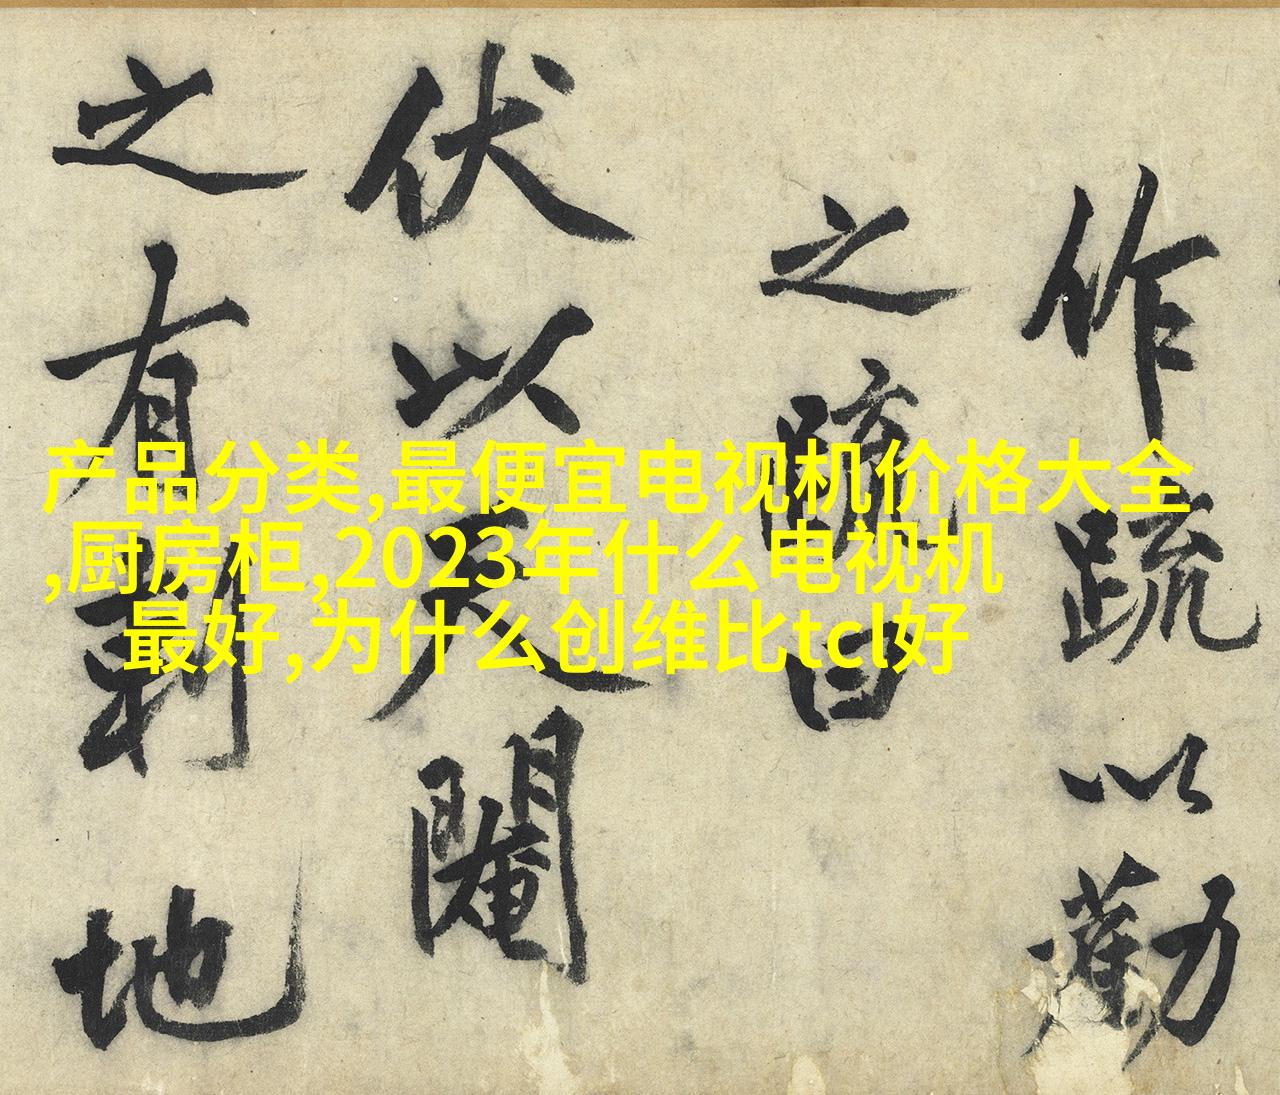 作䟽以勸
之䟽曰
伏以天閹
之有地
产品分类,最便宜电视机价格大全
,厨房柜,2023年什么电视机
最好,为什么创维比tcl好